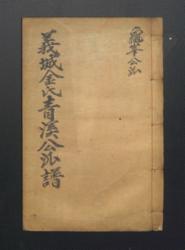 義城金氏靑溪公派譜
龜峯公派